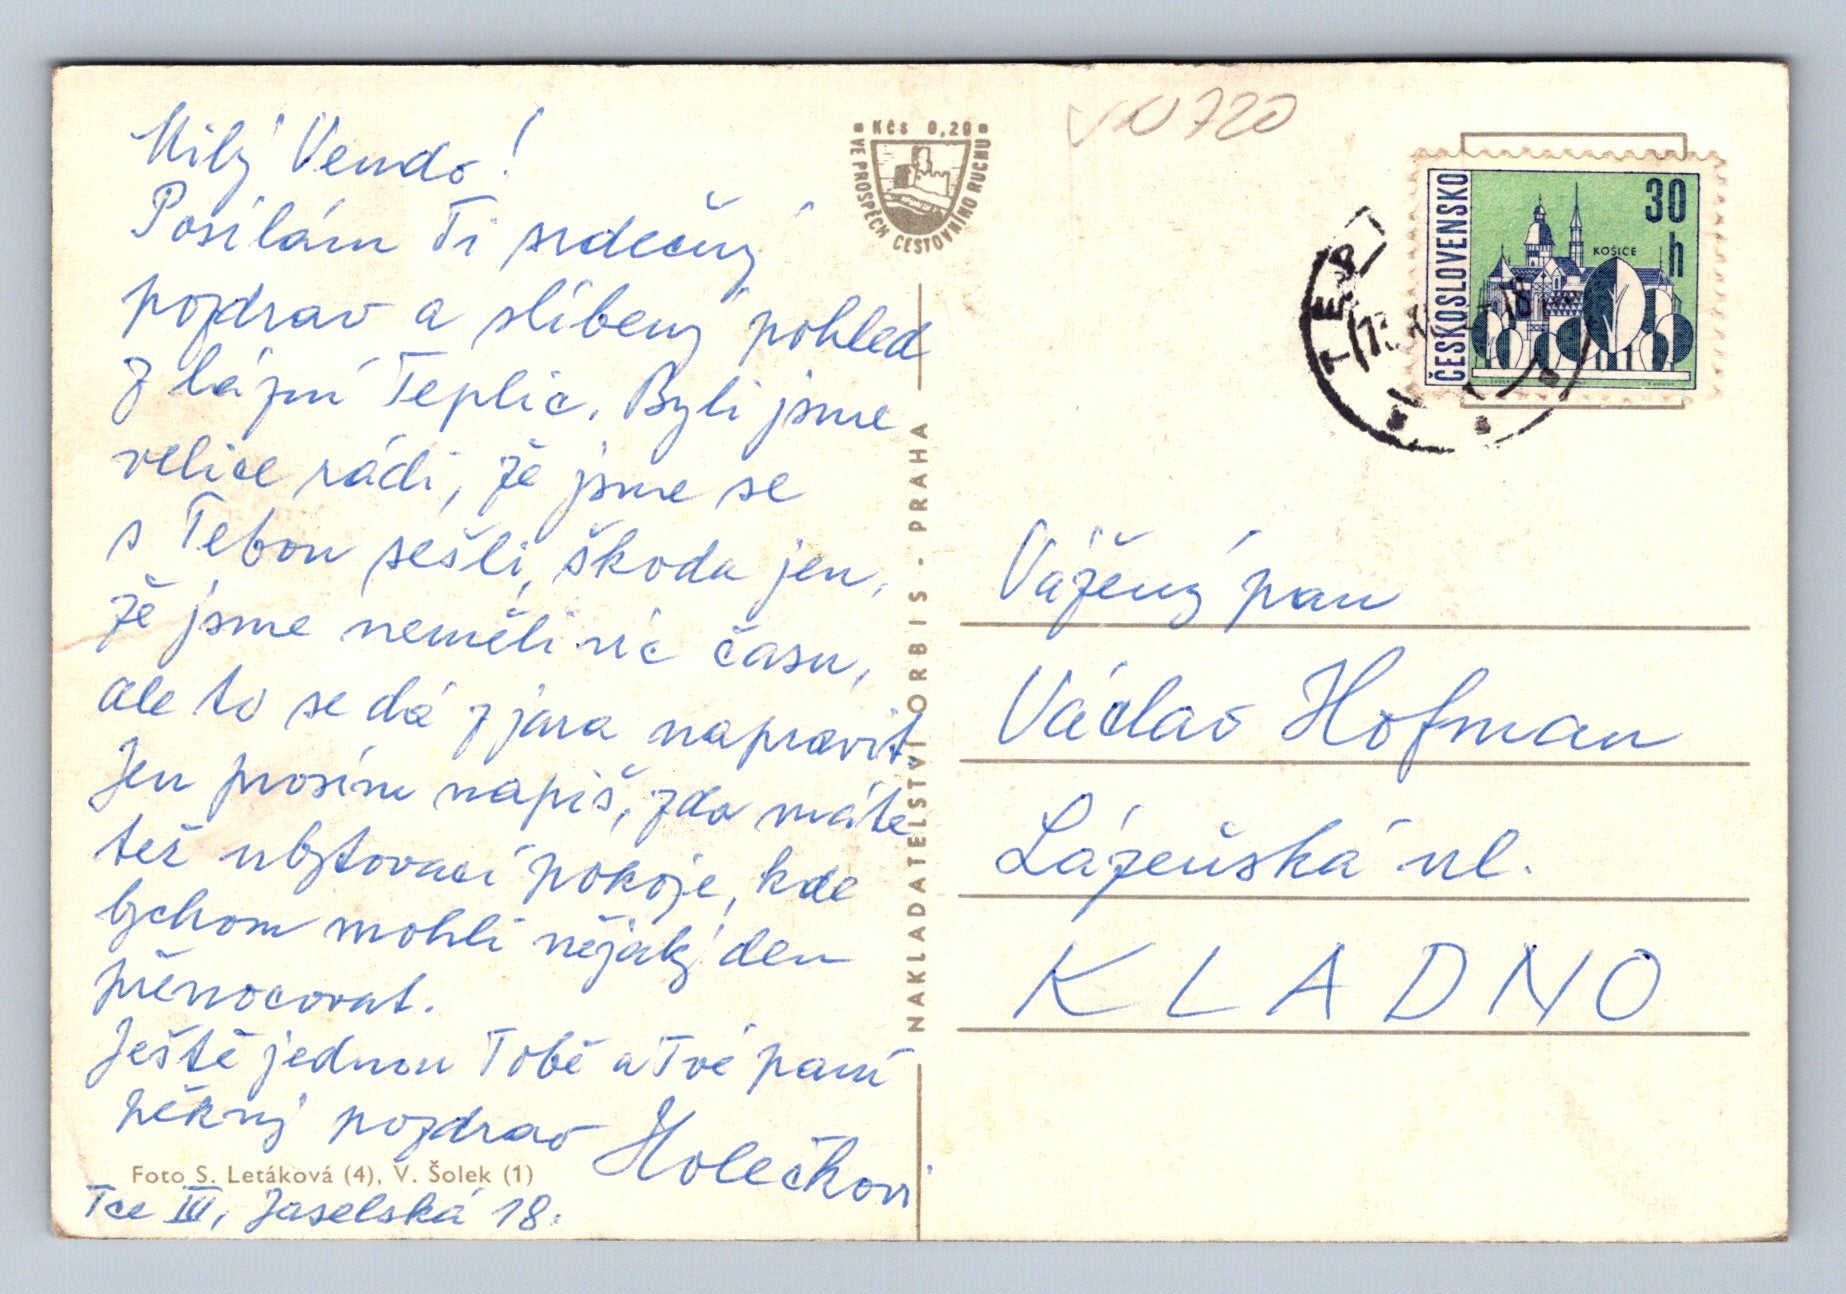 Milý Vendo!
Posílám Ti srdečný
pozdrav a slíbený pohled
z lázní Teplic. Byli jsme
velice rádi, že jsme se
s Tebou sešli, škoda jen,
že jsme neměli víc času,
ale to se dá z jara napravit.
Jen prosím napiš, zda máte
též ubytovací pokoje, kde
bychom mohli nějaký den
přenocovat.
Ještě jednou Tobě a Tvé paní
pěkný pozdrav Holečkovi
Foto S. Letáková (4), V. Šolek (1)
Tce III, Jaselská 18.
Kčs 0,20
VE PROSPĚCH CESTOVNÍHO RUCHU
NAKLADATELSTVÍ ORBIS - PRAHA
720
ČESKOSLOVENSKO
30
h
KOŠICE
Vážený pan
Václav Hofman
Lázeňská ul.
KLADNO